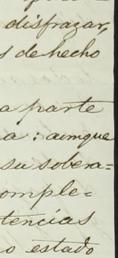 disfrazar,
s de hecho
a parte
a: aunque
su sobera=
omple=
tencias
o estado